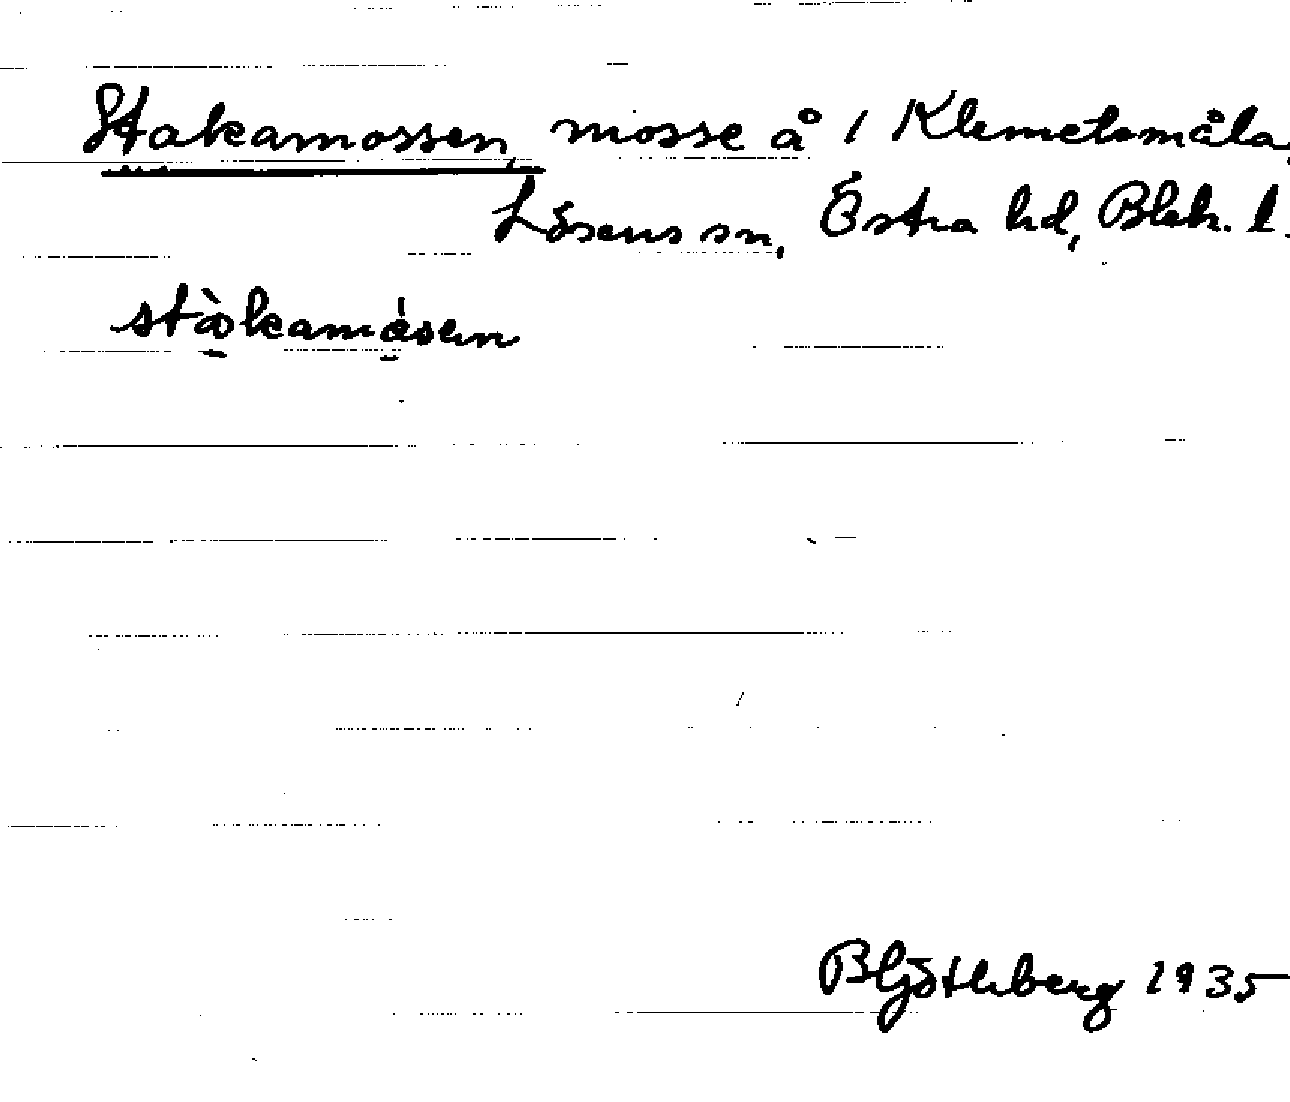 Stakamossen, mosse å 1 Klemetsmåla,
Lösens sn, Östra hd, Blek. l.
stàkamåsen
B Göthberg 1935